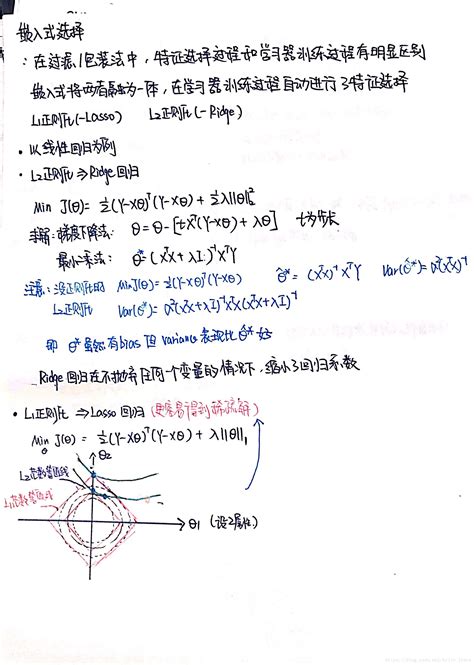 嵌入式选择
:在过滤/包装法中,特征选择过程和学习器训练过程有明显区别
嵌入式将两者融为一体,在学习器训练过程自动进行了特征选择
L1正则化(-Lasso) L2正则化(-Ridge)
• 以线性回归为例
• L2正则化 ⇒ Ridge回归
Min J(θ)= ½(Y-Xθ)ᵀ(Y-Xθ) + ½λ||θ||₂²
求解:梯度下降法: θ = θ - [tXᵀ(Y-Xθ) + λθ] t为步长
最小二乘法: θ* = (XᵀX + λI)⁻¹XᵀY
注意:没正则化的 Min J(θ) = ½(Y-Xθ)ᵀ(Y-Xθ) θ̂* = (XᵀX)⁻¹XᵀY Var(θ̂*) = σ²(XᵀX)⁻¹
L2正则化 Var(θ*) = σ²(XᵀX+λI)⁻¹XᵀX(XᵀX+λI)⁻¹
即 θ* 虽然有bias 但 variance 表现比 θ̂* 好
Ridge回归在不抛弃任何一个变量的情况下,缩小了回归系数
• L1正则化 ⇒ Lasso回归 (更容易得到稀疏解)
Min J(θ) = ½(Y-Xθ)ᵀ(Y-Xθ) + λ||θ||₁
θ
θ2
L2范数等值线
L1范数等值线
θ1 (设2属性)